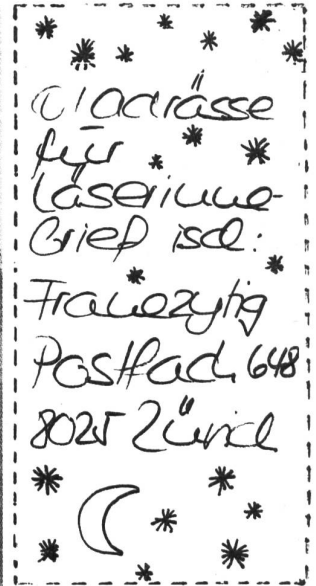 Adrässe
für
Läserinne-
Brief isch:
Frauezytig
Postfach 648
8025 Zürich